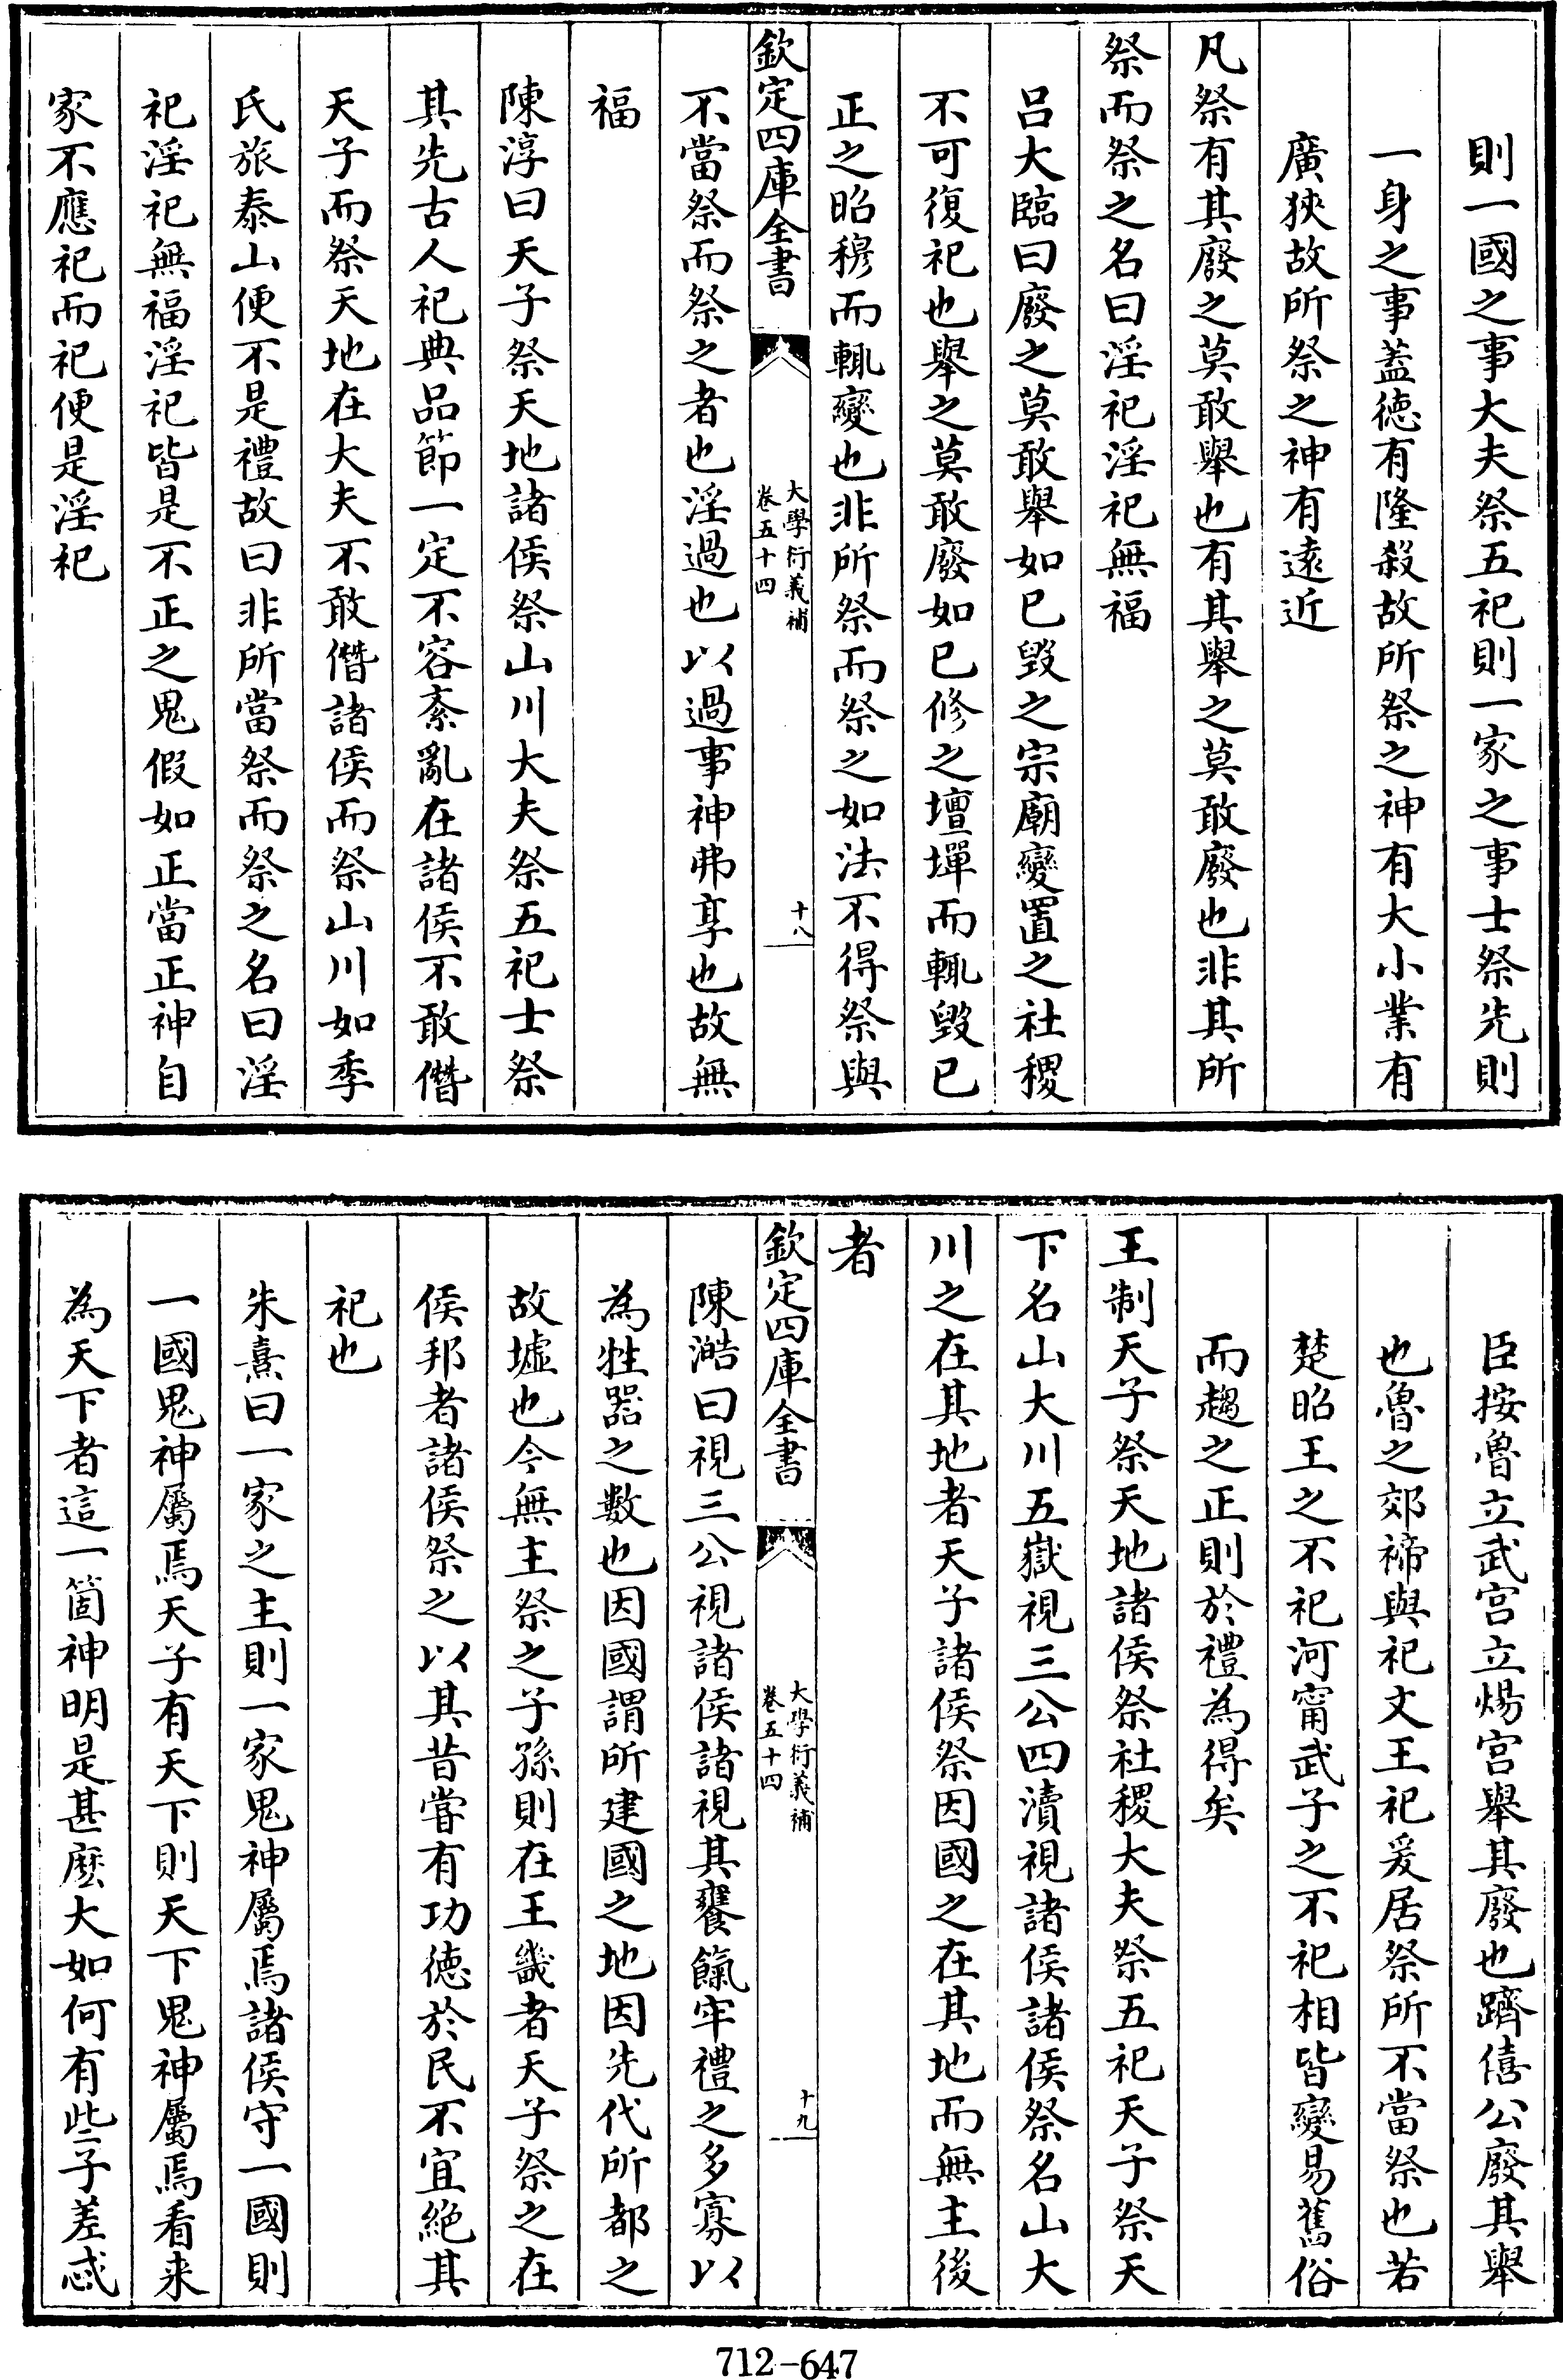 則一國之事大夫祭五祀則一家之事士祭先則
一身之事蓋徳有隆殺故所祭之神有大小業有
廣狹故所祭之神有逺近
凡祭有其廢之莫敢舉也有其舉之莫敢廢也非其所
祭而祭之名曰淫祀淫祀無福
吕大臨曰廢之莫敢舉如已毁之宗廟變置之社稷
不可復祀也舉之莫敢廢如已修之壇墠而輒毁已
正之昭穆而輒變也非所祭而祭之如法不得祭與
欽定四庫全書
大學衍義補
卷五十四
十八
不當祭而祭之者也淫過也以過事神弗享也故無
福
陳淳曰天子祭天地諸侯祭山川大夫祭五祀士祭
其先古人祀典品節一定不容紊亂在諸侯不敢僭
天子而祭天地在大夫不敢僭諸侯而祭山川如季
氏旅泰山便不是禮故曰非所當祭而祭之名曰淫
祀淫祀無福淫祀皆是不正之鬼假如正當正神自
家不應祀而祀便是淫祀
臣按魯立武宫立煬宫舉其廢也躋僖公廢其舉
也魯之郊禘與祀文王祀爰居祭所不當祭也若
楚昭王之不祀河甯武子之不祀相皆變易舊俗
而趨之正則於禮為得矣
王制天子祭天地諸侯祭社稷大夫祭五祀天子祭天
下名山大川五嶽視三公四瀆視諸侯諸侯祭名山大
川之在其地者天子諸侯祭因國之在其地而無主後
者
欽定四庫全書
大學衍義補
卷五十四
十九
陳澔曰視三公視諸侯諸視其饔餼牢禮之多寡以
為牲器之數也因國謂所建國之地因先代所都之
故墟也今無主祭之子孫則在王畿者天子祭之在
侯邦者諸侯祭之以其昔嘗有功徳於民不宜絶其
祀也
朱熹曰一家之主則一家鬼神屬焉諸侯守一國則
一國鬼神屬焉天子有天下則天下鬼神屬焉看来
為天下者這一箇神明是甚麽大如何有些子差忒
712-647